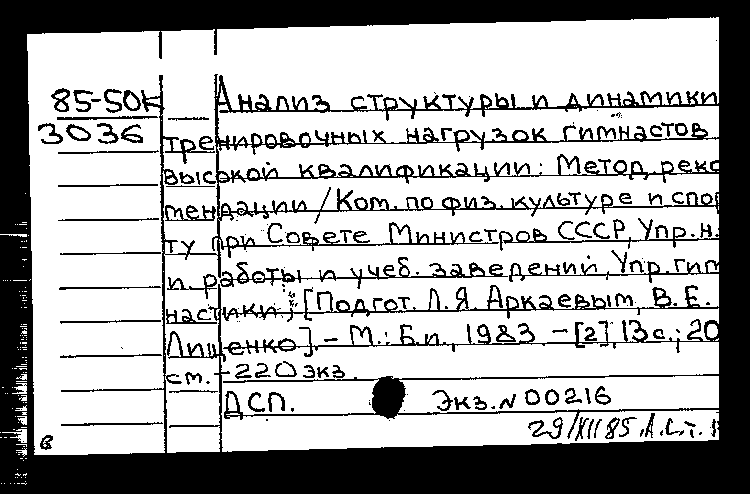 85-50К Анализ структуры и динамики
3036 тренировочных нагрузок гимнастов
высокой квалификации: Метод. реко
мендации / Ком. по физ. культуре и спор
ту при Совете Министров СССР, Упр. н.
и. работы и учеб. заведений, Упр. гим
настики; [Подгот. Л. Я. Аркаевым, В. Е.
Лищенко]. - М.: Б.и., 1983. - [2], 13 с.; 20
см. - 220 экз.
ДСП. Экз. N 00216
29/XII 85. А.С.т.
в